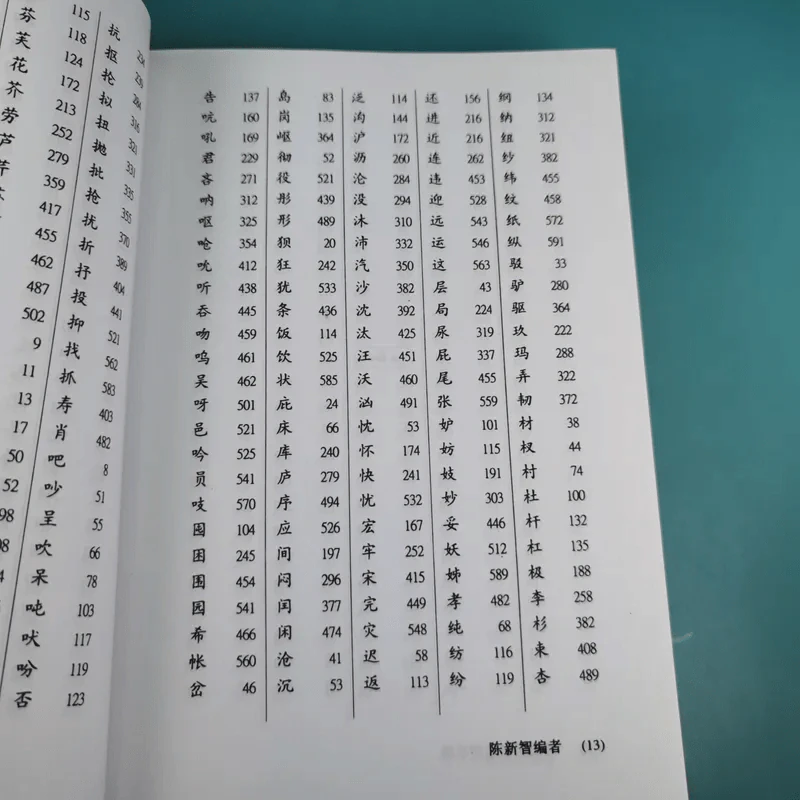 115
芬 118
芙 124
花 172
芥 213
劳 252
芦 279
芹 359
417
455
462
487
502
9
11
13
17
50
52
抗 234
抠 239
抡 284
拟 316
扭 321
抛 331
批 335
抢 355
扰 370
折 389
抒 404
投 441
抑 521
找 562
抓 583
寿 403
肖 482
吧 8
吵 51
呈 55
吹 66
呆 78
吨 103
吠 117
吩 119
否 123
告 137
吭 160
吼 169
君 229
吝 271
呐 312
呕 325
呛 354
吮 412
听 438
吞 445
吻 459
呜 461
吴 462
呀 501
邑 521
吟 525
员 541
吱 570
囤 104
困 245
围 454
园 541
希 466
帐 560
岔 46
岛 83
岗 135
岖 364
彻 52
役 521
彤 439
形 489
狈 20
狂 242
犹 533
条 436
饭 114
饮 525
状 585
庇 24
床 66
库 240
庐 279
序 494
应 526
间 197
闷 296
闰 377
闲 474
沧 41
沉 53
泛 114
沟 144
沪 172
沥 260
沦 284
没 294
沐 310
沛 332
汽 350
沙 382
沈 392
汰 425
汪 451
沃 460
汹 491
忱 53
怀 174
快 241
忧 532
宏 167
牢 252
宋 415
完 449
灾 548
迟 58
返 113
还 156
进 216
近 216
连 262
违 453
迎 528
远 543
运 546
这 563
层 43
局 224
尿 319
屁 337
尾 455
张 559
妒 101
妨 115
妓 191
妙 303
妥 446
妖 512
姊 589
孝 482
纯 68
纺 116
纷 119
纲 134
纳 312
纽 321
纱 382
纬 455
纹 458
纸 572
纵 591
驳 33
驴 280
驱 364
玖 222
玛 288
弄 322
韧 372
材 38
杈 44
村 74
杜 100
杆 132
杠 135
极 188
李 258
杉 382
束 408
杏 489
陈新智编者 (13)